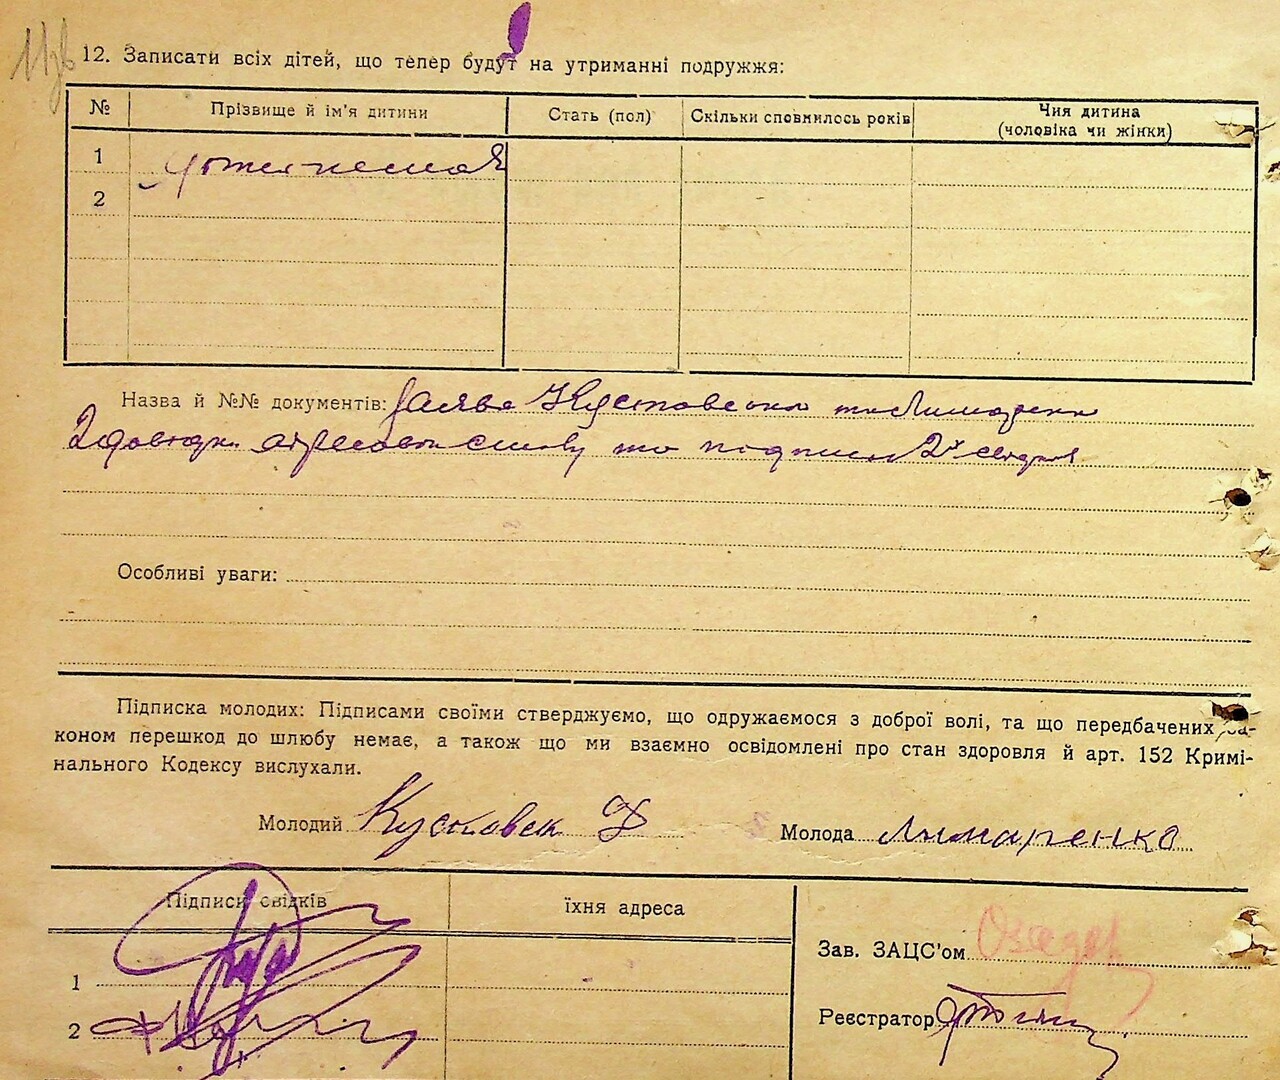 11зв
12. Записати всіх дітей, що тепер будут на утриманні подружжя:
№ Прізвище й ім'я дитини Стать (пол) Скільки сповнилось років Чия дитина
(чоловіка чи жінки)
1
2
Назва й №№ документів: Заява та Лимаренко
2 довідки та підписи 2х свідків
Особливі уваги:
Підписка молодих: Підписами своїми стверджуємо, що одружаємося з доброї волі, та що передбачених за-
коном перешкод до шлюбу немає, а також що ми взаємно освідомлені про стан здоровля й арт. 152 Кримі-
нального Кодексу вислухали.
Молодий Кустовск Молода Лимаренко
Підписи свідків їхня адреса
Зав. ЗАЦС'ом
1
Реєстратор
2